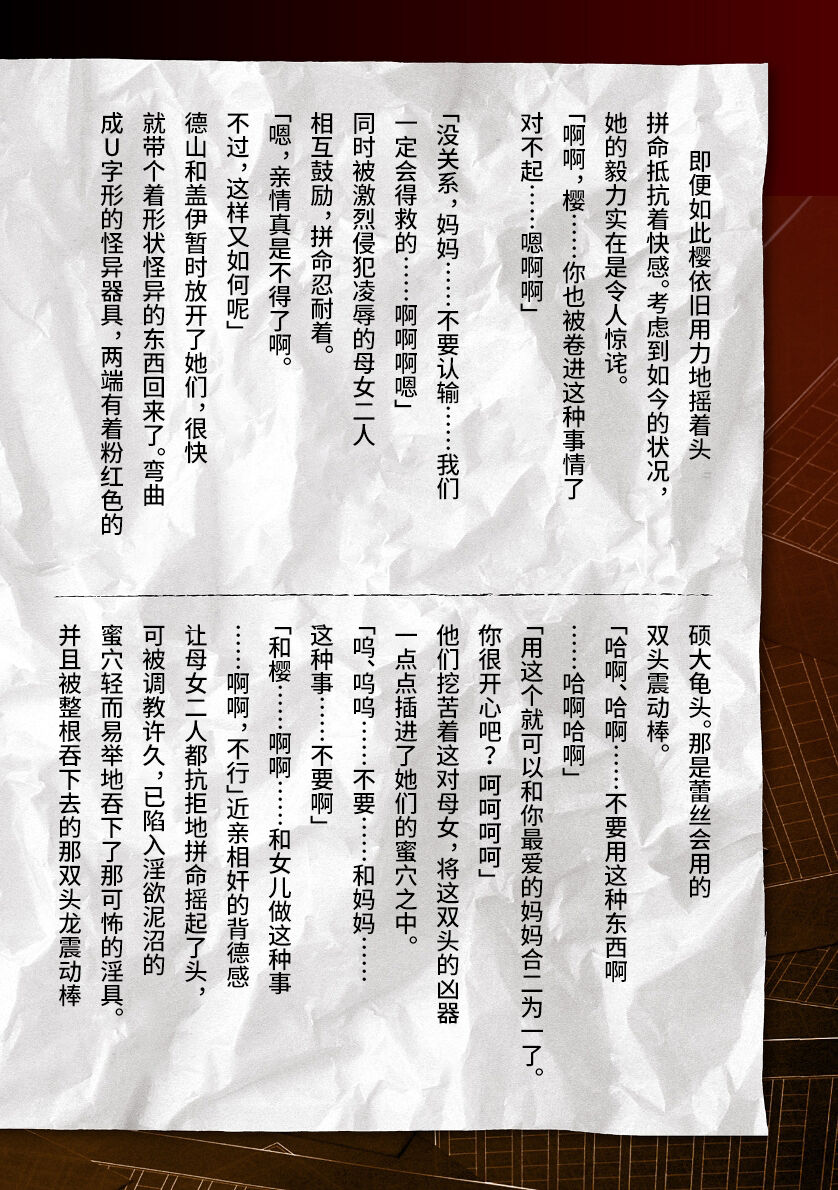 即便如此樱依旧用力地摇着头
拼命抵抗着快感。考虑到如今的状况，
她的毅力实在是令人惊诧。
「啊啊，樱……你也被卷进这种事情了
对不起……嗯啊啊」
「没关系，妈妈……不要认输……我们
一定会得救的……啊啊啊嗯」
同时被激烈侵犯凌辱的母女二人
相互鼓励，拼命忍耐着。
「嗯，亲情真是不得了啊。
不过，这样又如何呢」
德山和盖伊暂时放开了她们，很快
就带个着形状怪异的东西回来了。弯曲
成U字形的怪异器具，两端有着粉红色的
硕大龟头。那是蕾丝会用的
双头震动棒。
「哈啊、哈啊……不要用这种东西啊
……哈啊哈啊」
「用这个就可以和你最爱的妈妈合二为一了。
你很开心吧？呵呵呵呵」
他们挖苦着这对母女，将这双头的凶器
一点点插进了她们的蜜穴之中。
「呜、呜呜……不要……和妈妈……
这种事……不要啊」
「和樱……啊啊……和女儿做这种事
……啊啊，不行」近亲相奸的背德感
让母女二人都抗拒地拼命摇起了头，
可被调教许久，已陷入淫欲泥沼的
蜜穴轻而易举地吞下了那可怖的淫具。
并且被整根吞下去的那双头龙震动棒